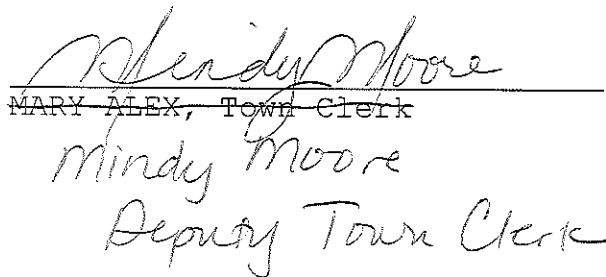 Mindy Moore
MARY ALEX, Town Clerk
Mindy Moore
Deputy Town Clerk